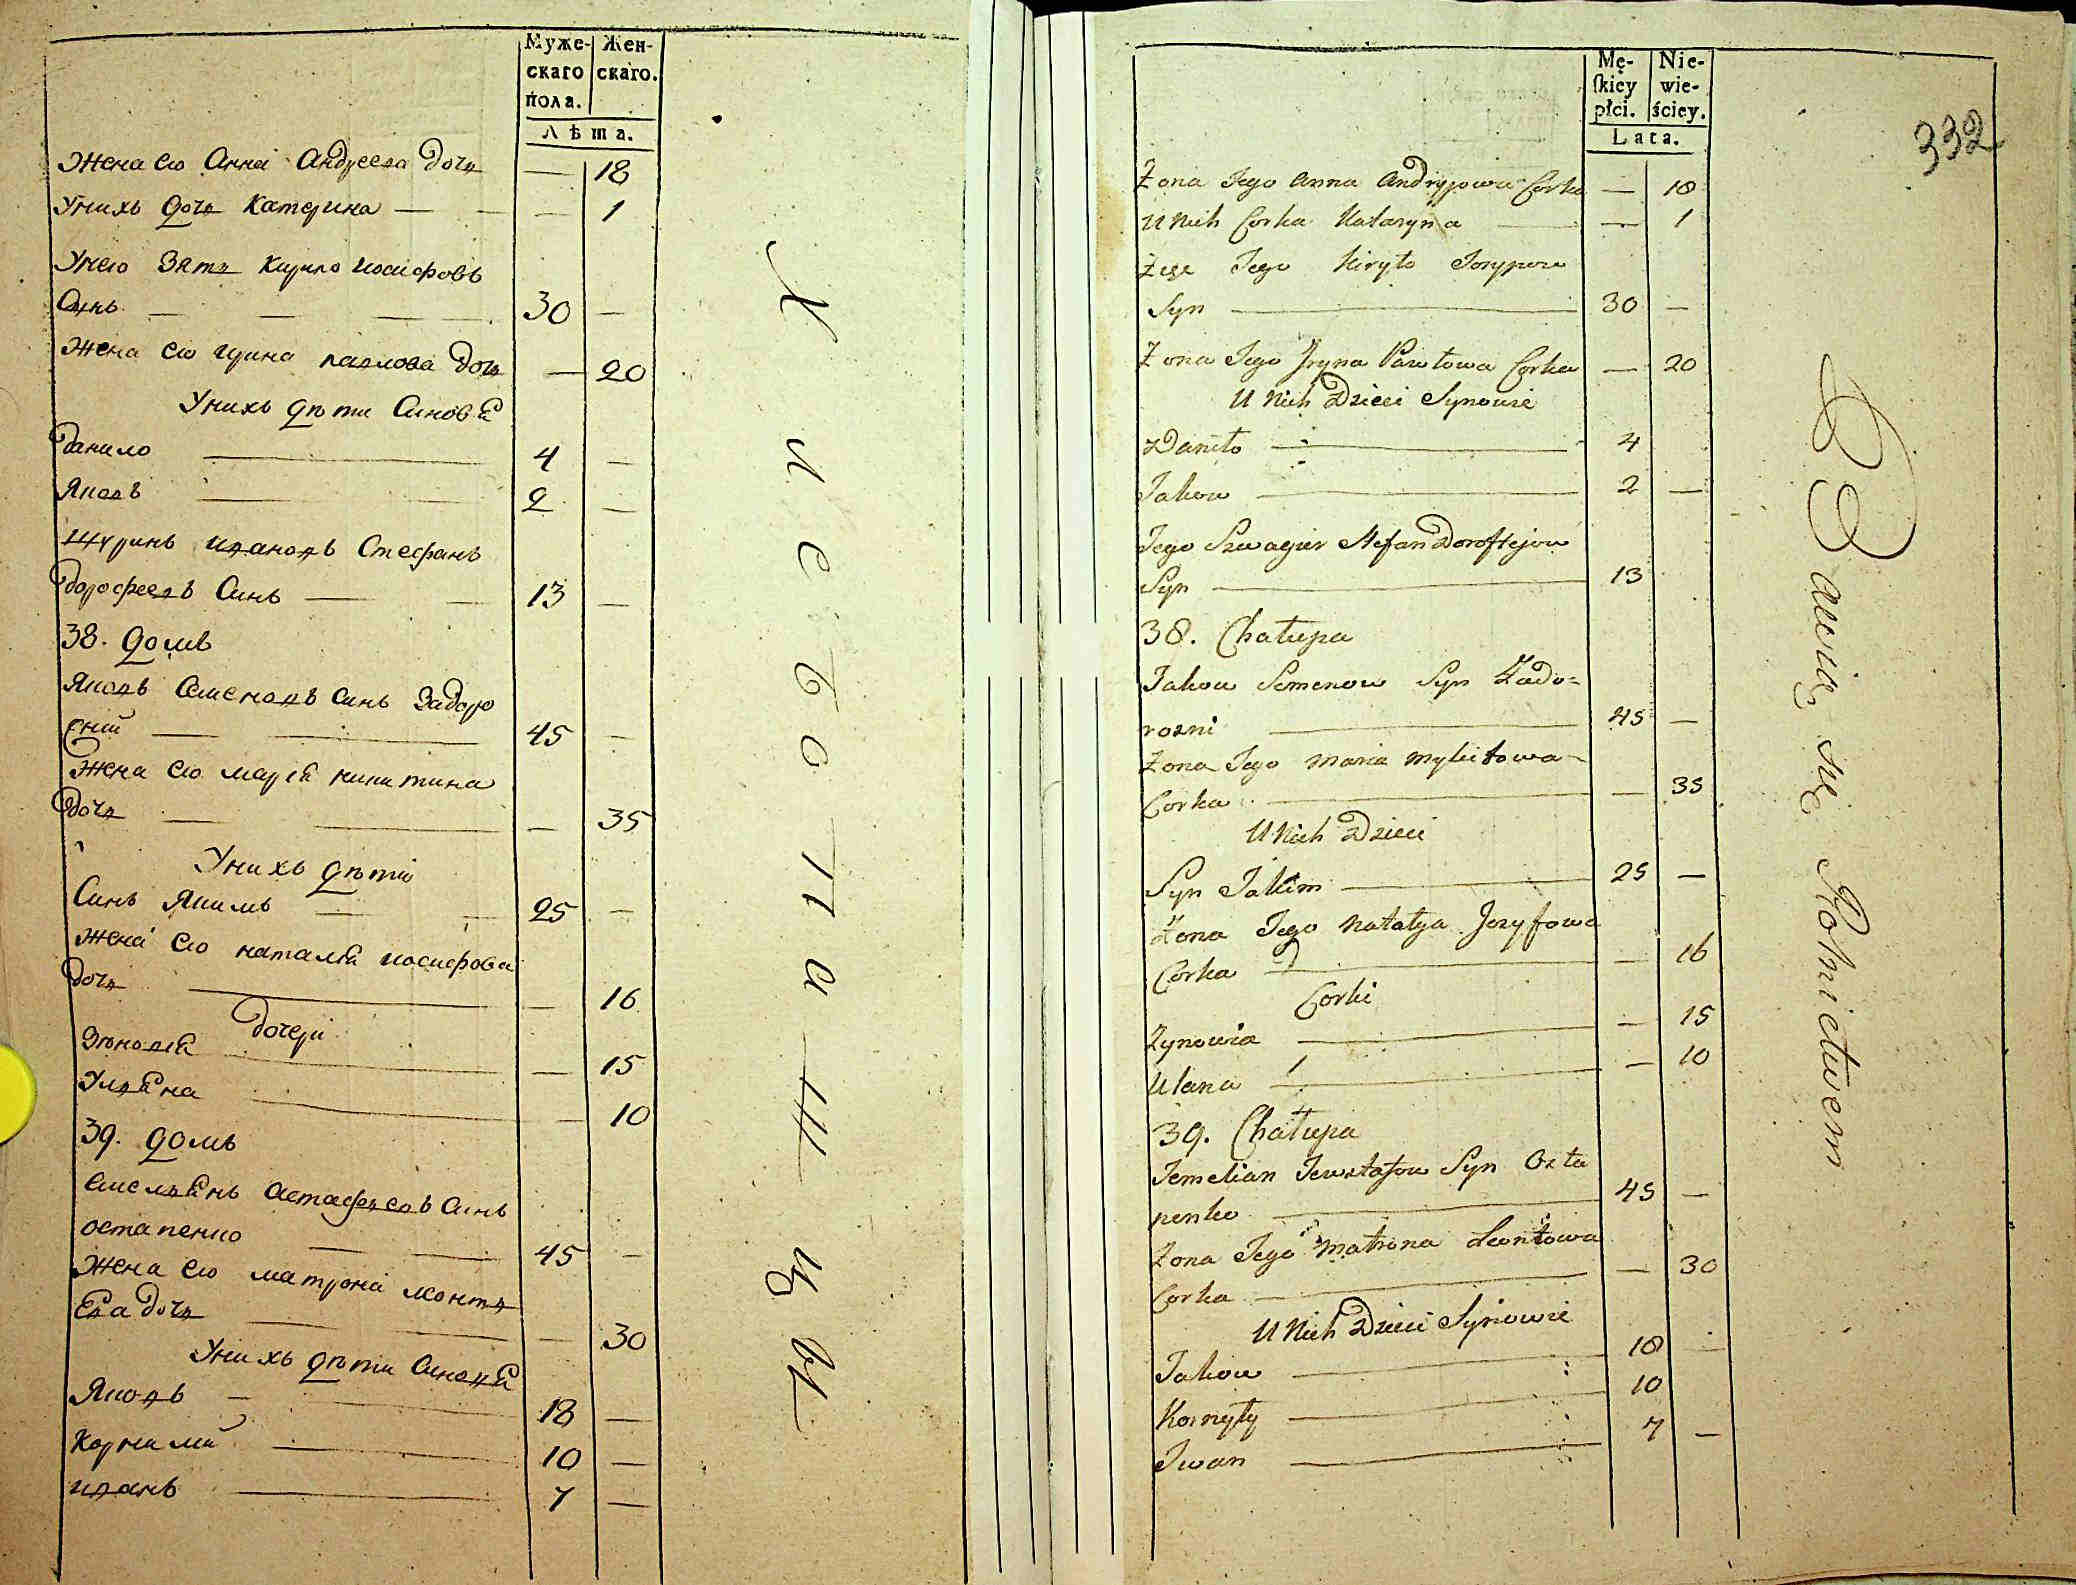 Муже- Жен-
скаго скаго.
пола.
Лѣта.
Жена его Анна Андреева дочь — 18
У нихъ дочь Катерина — — 1
У него зять Кирило иосифовъ
синь — 30 —
Жена его ирина павлова дочь — 20
У нихъ дѣти синовя
данило — 4 —
Яковъ — 2 —
Щуринъ ивановъ Стефанъ
дорофеевъ синъ — 13 —
38. домъ
Яковъ Семеновъ синъ Задоро
жній — 45 —
Жена его марія никитина
дочь — — 35
У нихъ дѣти
Синъ Якимъ — 25 —
Жена его наталия иосифова
дочь — — 16
дочери
Зѣновия — — 15
Улияна — 10
39. домъ
Емельянъ Астафьевъ синъ
остапенко — 45 —
Жена его матрона леонть
ева дочь — — 30
У нихъ дѣти синовя
Яковъ — 18 —
Корнилий — 10 —
иванъ — 7 —
Хлебопашцы
Mę- Nie-
skiey wie-
płci. ściey.
Lata.
332
Zona Jego Anna Andryjowa Corka — 18
U Nich Corka Kataryna — — 1
Zięc Jego Kiryło Jozypow
Syn — 30 —
Zona Jego Jryna Pawłowa Corka — 20
U Nich Dzieci Synowie
Daniło — 4
Jakow — 2 —
Jego Szwagier Stefan Doroftejow
Syn — 13
38. Chałupa
Jakow Semenow Syn Zado=
rozni — 45 —
Zona Jego Maria Mykitowa
Corka — — 35
U Nich Dzieci
Syn Jakim — 25 —
Zona Jego Natalya Jozyfowa
Corka — — 16
Corki
Zynowia — — 15
Ulana — — 10
39. Chałupa
Jemelian Jewstafow Syn Osta
penko — 45 —
Zona Jego Matrona Leontowa
Corka — — 30
U Nich Dzieci Synowie
Jakow — 18 —
Kornyły — 10
Jwan — 7 —
Bawią się Rolnictwem